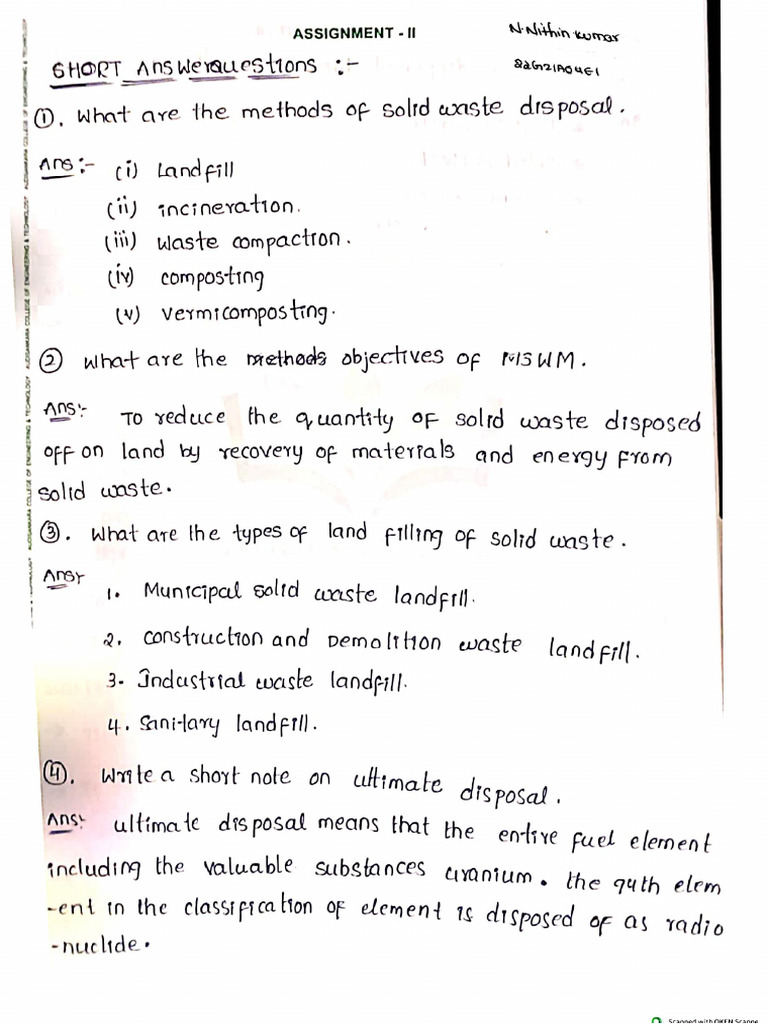 ASSIGNMENT - II
N. Nithin kumar
SHORT Answerquestions :-
①. What are the methods of solid waste disposal.
Ans:- (i) Landfill
(ii) incineration.
(iii) Waste compaction.
(iv) composting
(v) vermicomposting.
② What are the methods objectives of MSWM.
Ans:- To reduce the quantity of solid waste disposed
off on land by recovery of materials and energy from
solid waste.
③. What are the types of land filling of solid waste.
Ans:-
1. Municipal solid waste landfill.
2. construction and Demolition waste landfill.
3. Industrial waste landfill.
4. Sanitary landfill.
④. Write a short note on ultimate disposal.
Ans:- ultimate disposal means that the entire fuel element
including the valuable substances uranium. the 94th elem
-ent in the classification of element is disposed of as radio
-nuclide.